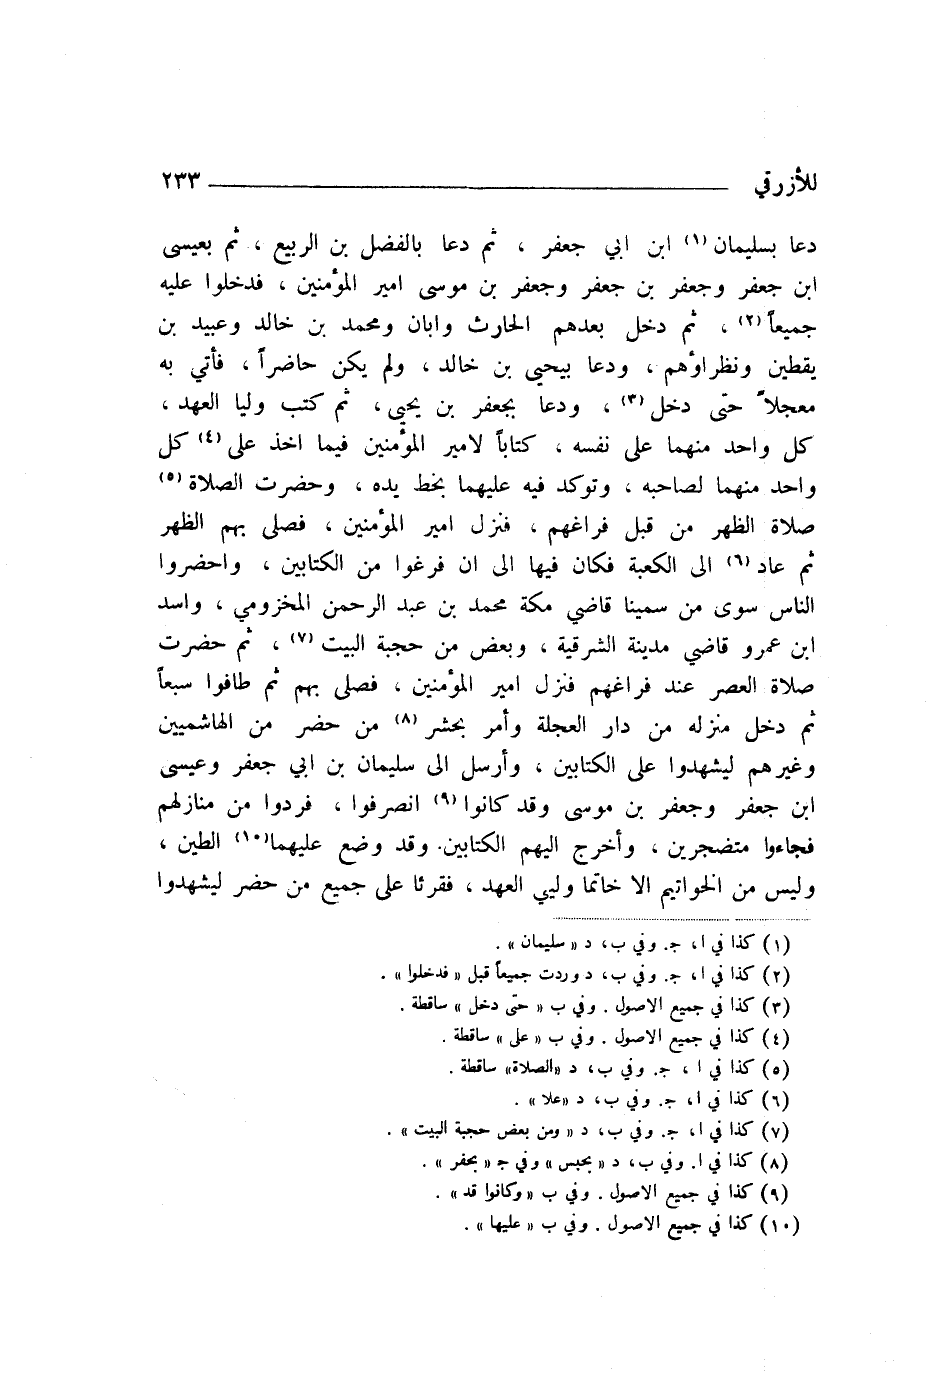 للأزرقي ٢٣٣
دعا بسليمان(١) ابن ابي جعفر ، ثم دعا بالفضل بن الربيع ، ثم بعيسى
ابن جعفر وجعفر بن جعفر وجعفر بن موسى امير المؤمنين ، فدخلوا عليه
جميعاً(٢) ، ثم دخل بعدهم الحارث وابان ومحمد بن خالد وعبيد بن
يقطين ونظراؤهم ، ودعا بيحيى بن خالد ، ولم يكن حاضراً ، فأتي به
معجلاً حتى دخل(٣) ، ودعا بجعفر بن يحيى ، ثم كتب وليا العهد ،
كل واحد منهما على نفسه ، كتاباً لامير المؤمنين فيما اخذ على(٤) كل
واحد منهما لصاحبه ، وتوكد فيه عليهما بخط يده ، وحضرت الصلاة(٥)
صلاة الظهر من قبل فراغهم ، فنزل امير المؤمنين ، فصلى بهم الظهر
ثم عاد(٦) الى الكعبة فكان فيها الى ان فرغوا من الكتابين ، واحضروا
الناس سوى من سمينا قاضي مكة محمد بن عبد الرحمن المخزومي ، واسد
ابن عمرو قاضي مدينة الشرقية ، وبعض من حجبة البيت(٧) ، ثم حضرت
صلاة العصر عند فراغهم فنزل امير المؤمنين ، فصلى بهم ثم طافوا سبعاً
ثم دخل منزله من دار العجلة وأمر بحشر(٨) من حضر من الهاشميين
وغيرهم ليشهدوا على الكتابين ، وأرسل الى سليمان بن ابي جعفر وعيسى
ابن جعفر وجعفر بن موسى وقد كانوا(٩) انصرفوا ، فردوا من منازلهم
فجاءوا متضجرين ، وأخرج اليهم الكتابين. وقد وضع عليهما(١٠) الطين ،
وليس من الخواتيم الا خاتما وليي العهد ، فقرئا على جميع من حضر ليشهدوا
(١) كذا في ا، ج. وفي ب، د « سليمان » .
(٢) كذا في ا، ج. وفي ب، د وردت جميعاً قبل « فدخلوا » .
(٣) كذا في جميع الاصول . وفي ب « حتى دخل » ساقطة .
(٤) كذا في جميع الاصول . وفي ب « على » ساقطة .
(٥) كذا في ا ، ج. وفي ب، د «الصلاة» ساقطة .
(٦) كذا في ا، ج. وفي ب، د «علا» .
(٧) كذا في ا، ج. وفي ب، د « ومن بعض حجبة البيت » .
(٨) كذا في ا. وفي ب، د « بحبس » وفي ج « بحفر » .
(٩) كذا في جميع الاصول . وفي ب « وكانوا قد » .
(١٠) كذا في جميع الاصول . وفي ب « عليها » .